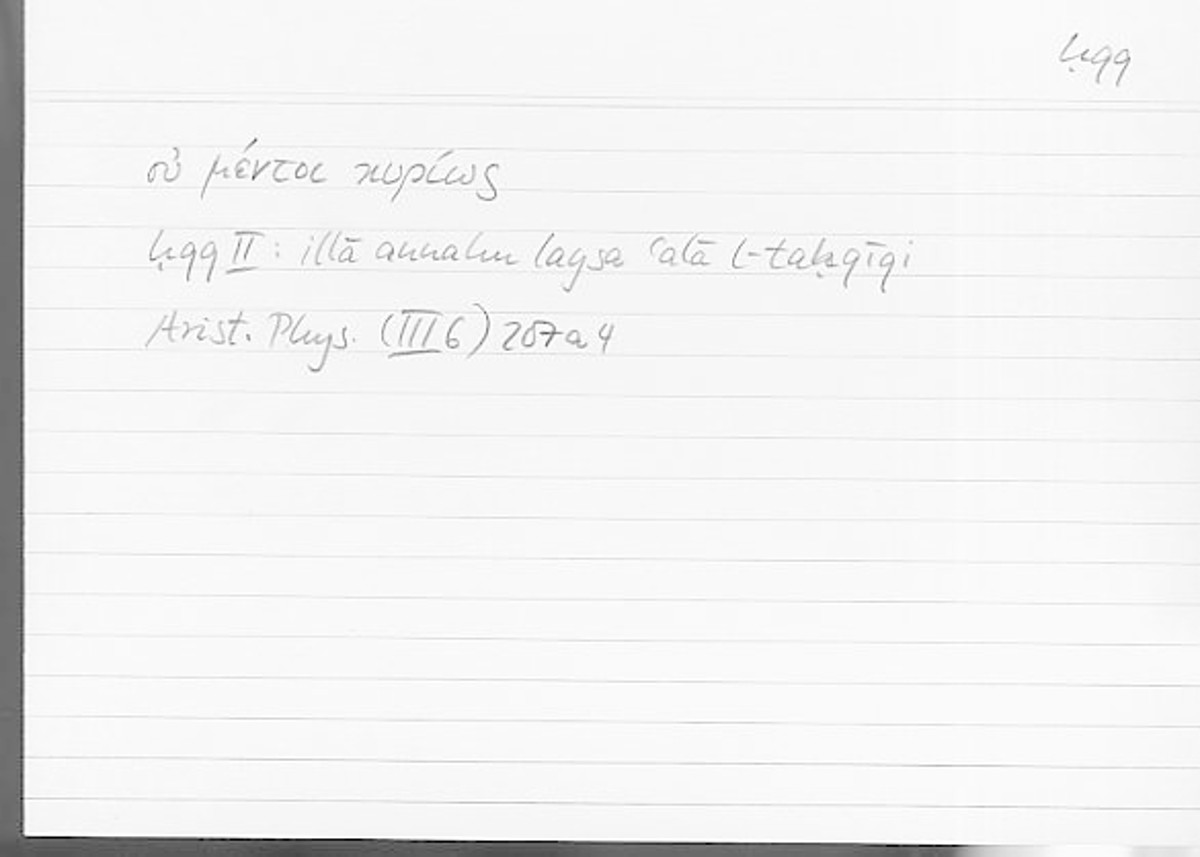 ḥqq
οὐ μέντοι κυρίως
ḥqq II : illā annahu laysa ʿalā l-taḥqīqi
Arist. Phys. (III 6) 207a4